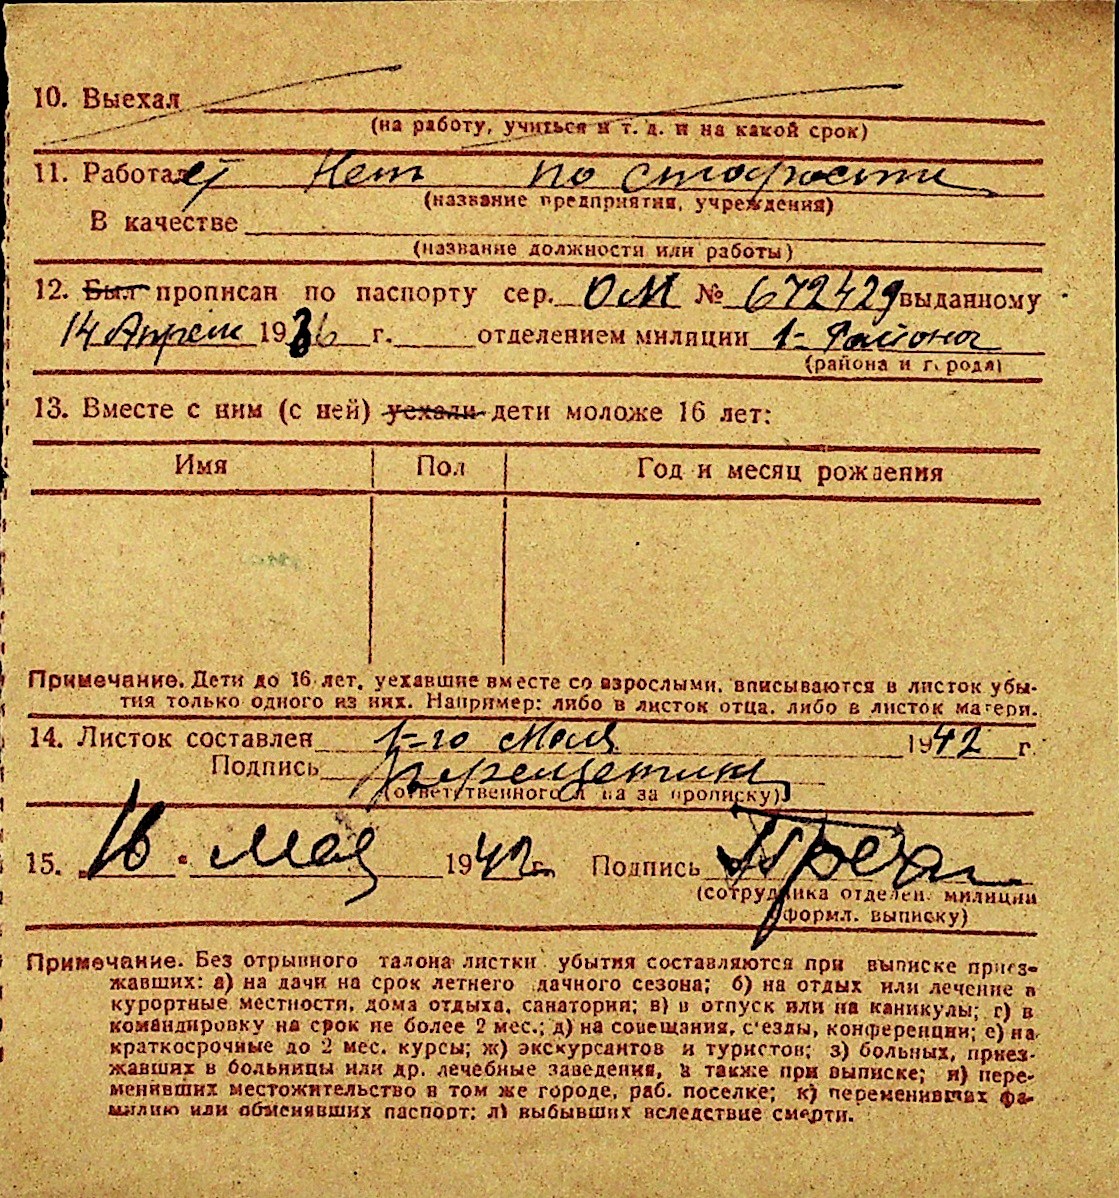 10. Выехал
(на работу, учиться и т. д. и на какой срок)
11. Работает Нет по старости
(название предприятия, учреждения)
В качестве
(название должности или работы)
12. Был прописан по паспорту сер. ОМ № 672429 выданному
14 Апреля 1936 г. отделением милиции 1- Района
(района и города)
13. Вместе с ним (с ней) уехали дети моложе 16 лет:
Имя Пол Год и месяц рождения
Примечание. Дети до 16 лет, уехавшие вместе со взрослыми, вписываются в листок убы-
тия только одного из них. Например: либо в листок отца, либо в листок матери.
14. Листок составлен 1-го Мая 1942 г.
Подпись
(ответственного лица за прописку)
15. 16 Мая 1942 г. Подпись
(сотрудника отделен. милиции
оформл. выписку)
Примечание. Без отрывного талона листки убытия составляются при выписке приез-
жавших: а) на дачи на срок летнего дачного сезона; б) на отдых или лечение в
курортные местности, дома отдыха, санатории; в) в отпуск или на каникулы; г) в
командировку на срок не более 2 мес.; д) на совещания, с'езды, конференции; е) на
краткосрочные до 2 мес. курсы; ж) экскурсантов и туристов; з) больных, приез-
жавших в больницы или др. лечебные заведения, а также при выписке; и) пере-
менивших местожительство в том же городе, раб. поселке; к) переменивших фа-
милию или обменявших паспорт; л) выбывших вследствие смерти.